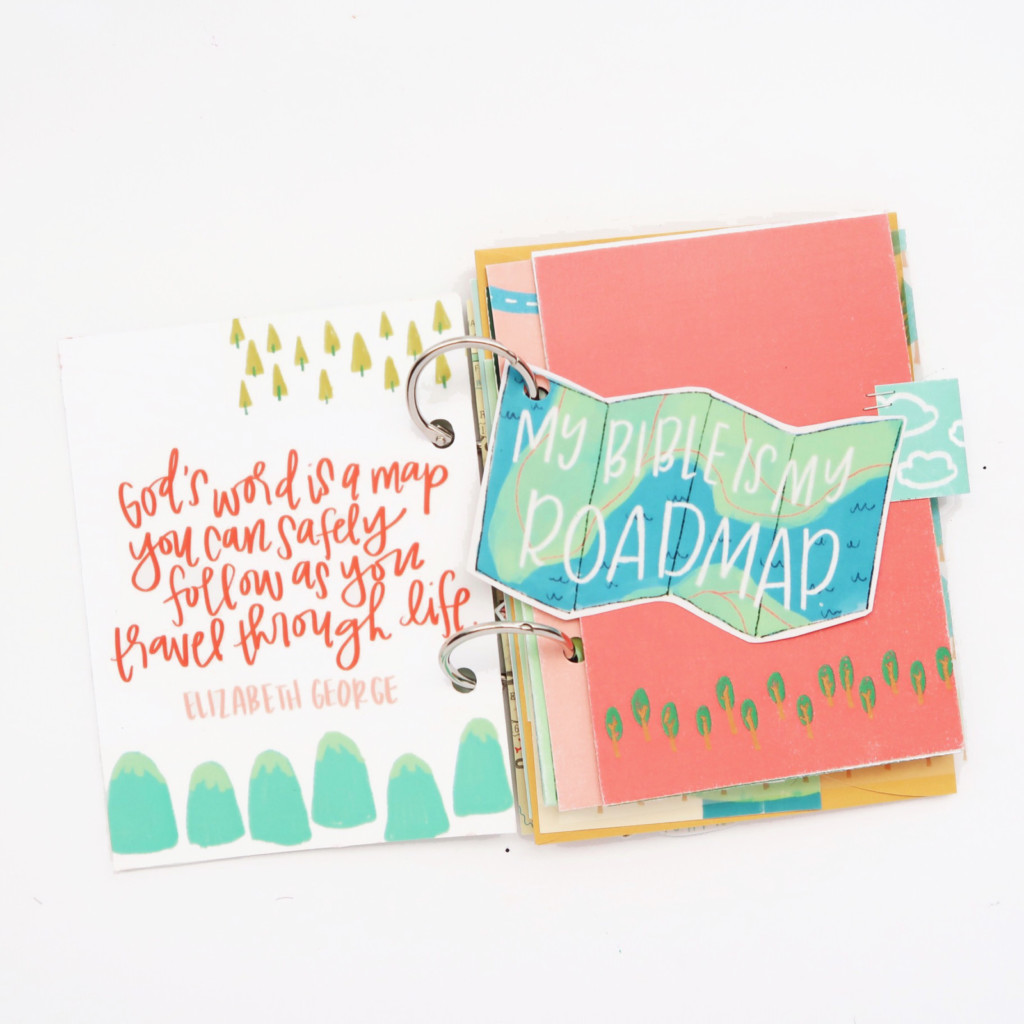 God's word is a map
you can safely
follow as you
travel through life.
ELIZABETH GEORGE
MY BIBLE IS MY
ROADMAP.